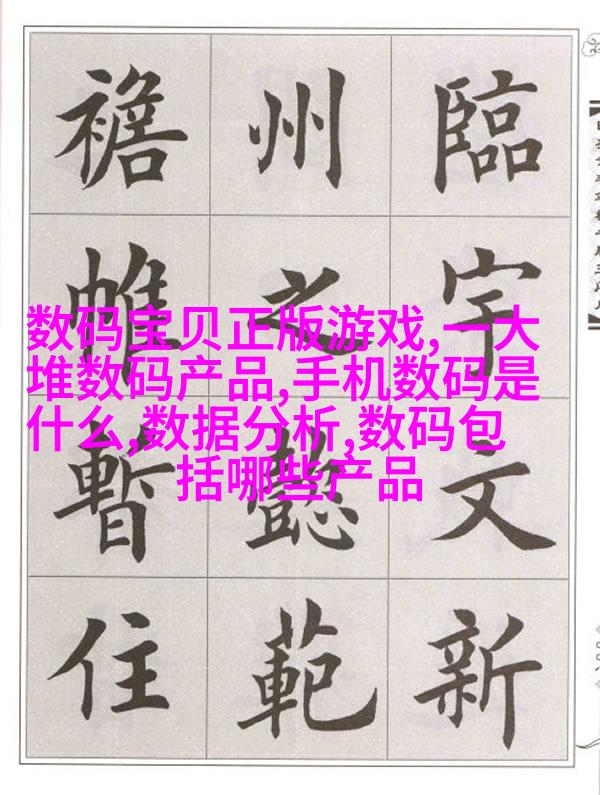 臨宇文新
州之懿範
襜帷暫住
数码宝贝正版游戏,一大
堆数码产品,手机数码是
什么,数据分析,数码包
括哪些产品